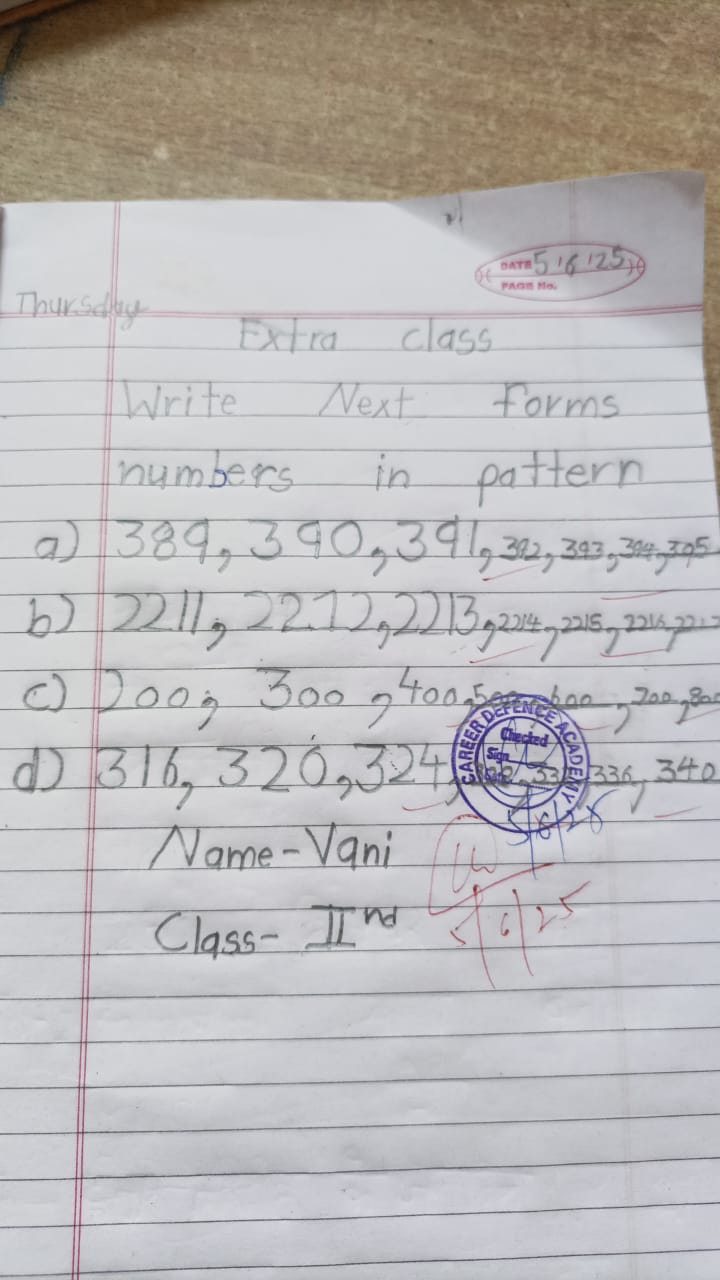 DATE 5/6/25
PAGE No.
Thursday
Extra class
Write Next forms
numbers in pattern
a) 389, 390, 391, 392, 393, 394, 395
b) 2211, 2212, 2213, 2214, 2215, 2216, 2217
c) 200, 300, 400, 500, 600, 700, 800
d) 316, 320, 324, 328, 332, 336, 340
CAREER DEFENCE ACADEMY
Checked
Sign
5/6/25
Name-Vani
5/6/25
Class- IInd